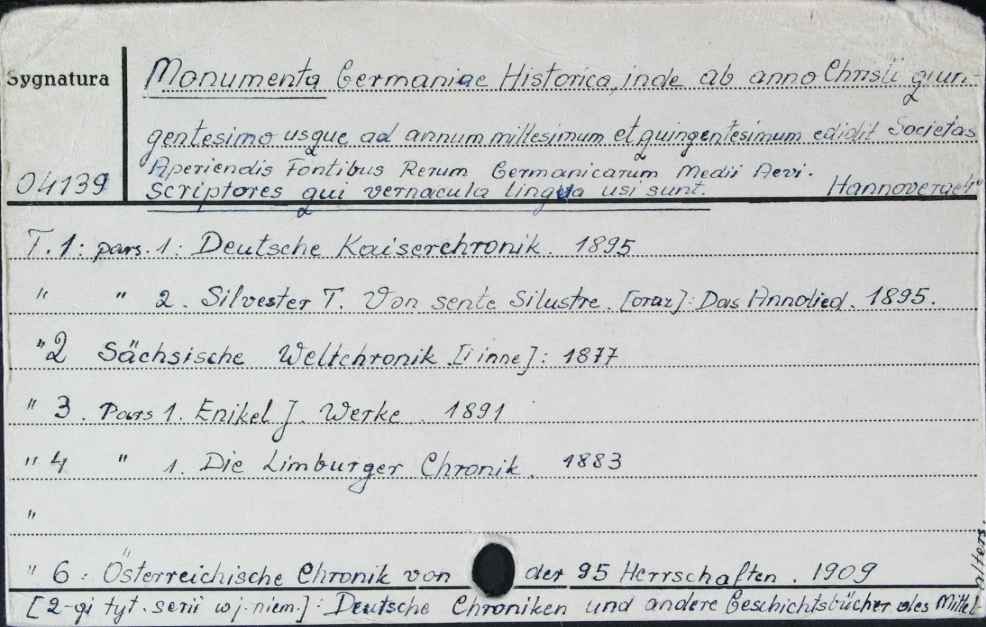 Sygnatura
Monumenta Germaniae Historica, inde ab anno Christi quin-
gentesimo usque ad annum millesimum et quingentesimum edidit Societas
Aperiendis Fontibus Rerum Germanicarum Medii Aevi.
04139 Scriptores qui vernacula lingua usi sunt.
T. 1: pars. 1: Deutsche Kaiserchronik. 1895
" " 2. Silvester T. Von sente Silustre. [oraz]: Das Annolied. 1895.
" 2 Sächsische Weltchronik [i inne]: 1877
" 3. Pars 1. Enikel J. Werke. 1891
" 4 " 1. Die Limburger Chronik. 1883
"
" 6: Österreichische Chronik von den 95 Herrschaften. 1909
[2-gi tyt. serii w j. niem.]: Deutsche Chroniken und andere Geschichtsbücher des Mittel-
alters.